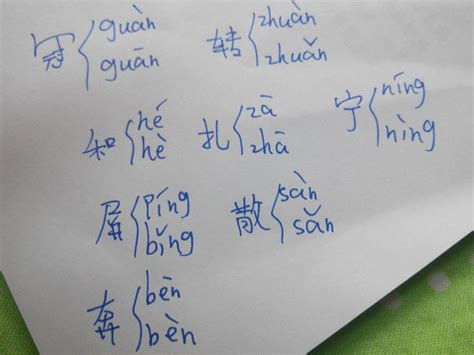 冠{guàn guān
转{zhuàn zhuǎn
和{hé hè
扎{zā zhā
宁{níng nìng
屏{píng bǐng
散{sàn sǎn
奔{bèn bèn